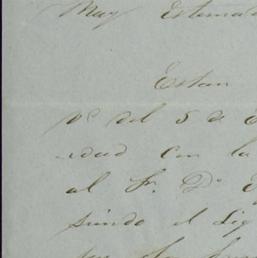 Muy Estima
Estan
pº del 5 de E
edad con la
al Sr. Dn
siendo el Sig